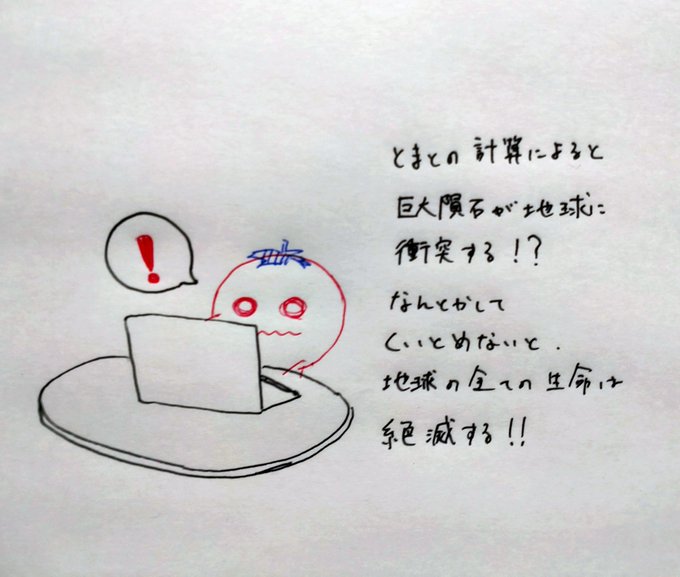 !
とまとの計算によると
巨大隕石が地球に
衝突する!?
なんとかして
くいとめないと.
地球の全ての生命は
絶滅する!!